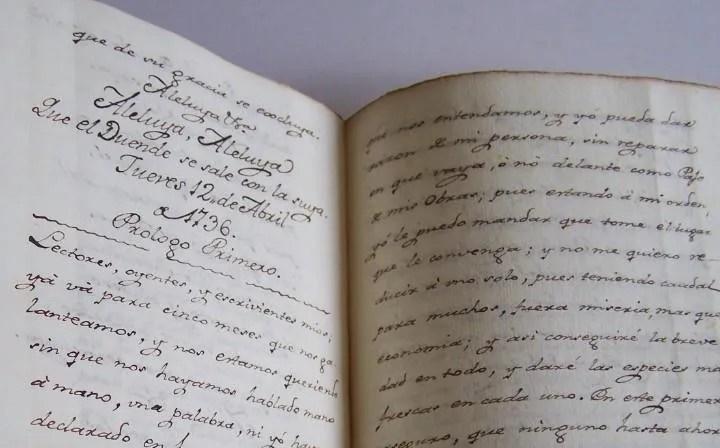 que de su gracia se concluya.
Aleluya &ra
Aleluya, Aleluya
Que el Duende se sale con la suya.
Jueves 12, de Abril
1736.
Prologo Primero.
Lectores, oyentes, y escrivientes mios;
yà và para cinco meses que nos ga-
lanteamos, y nos estamos queriendo
sin que nos hayamos hablado mano
à mano, una palabra, ni yó hay
declarado en
nos entendamos, y yó pueda dar
razon de mi persona, sin reparar
en que vaya, ó nó delante como Paje
de mis Obras; pues estando à mi orden,
yó le puedo mandar que tome el lugar
que le convenga; y no me quiero re-
ducir à uno solo, pues teniendo caudal
para muchos, fuera miseria, mas que
economia; y asi conseguiré la breve
dad en todo, y daré las especies ma
frescas en cada uno. En este primer
aseguro, que ninguno hasta ahor